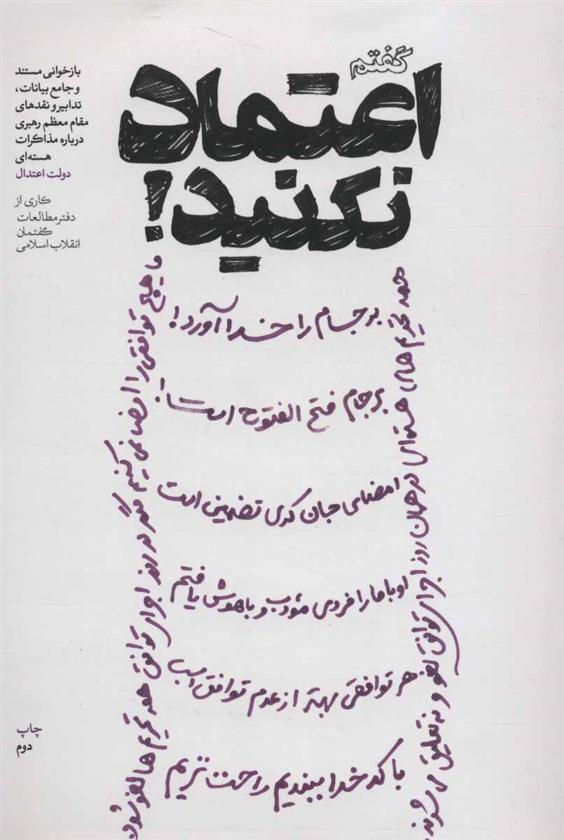 گفتم
اعتماد
نکنید!
بازخوانی مستند
و جامع بیانات،
تدابیر و نقدهای
مقام معظم رهبری
درباره مذاکرات
هسته‌ای
دولت اعتدال
کاری از
دفتر مطالعات
گفتمان
انقلاب اسلامی
همه تحریم های هسته‌ای در همان روز اجرای توافق لغو و نه تعلیق می شوند
برجام را خدا آورد!
برجام فتح الفتوح است
امضای جان کری تضمین است
اوباما را فردی مؤدب و باهوش یافتم
هر توافقی بهتر از عدم توافق است
با کدخدا ببندیم راحت تریم
ما هیچ توافقی را امضا نمی کنیم مگر در روز اجرای توافق همه تحریم ها لغو شود
چاپ
دوم